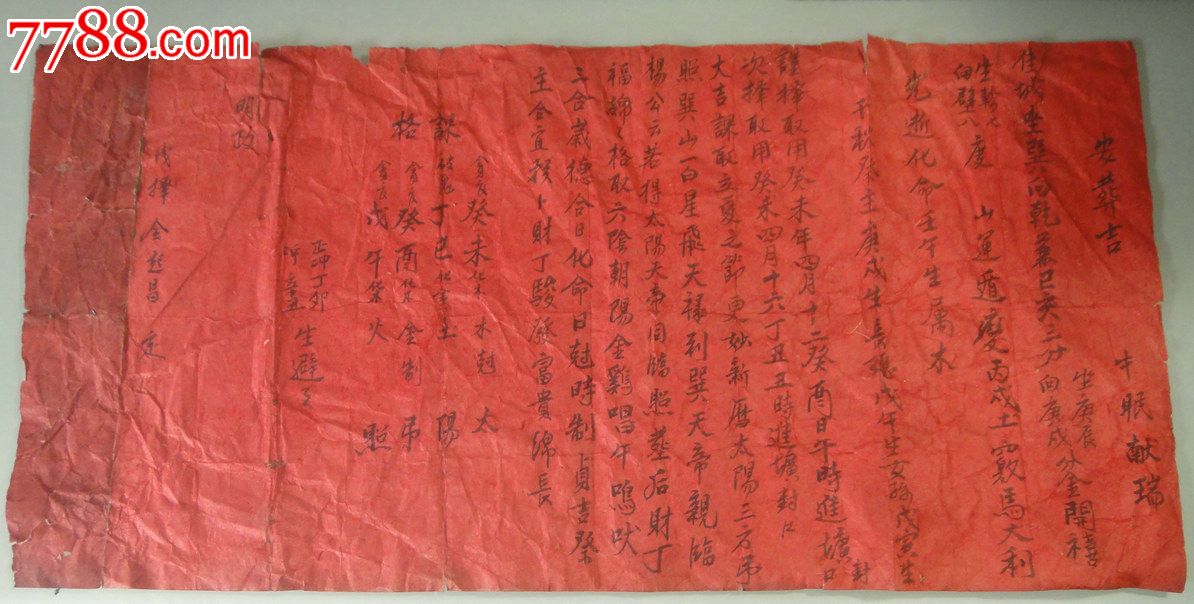 7788.com
牛眠献瑞
安葬吉
坐庚辰
佳城坐巽向乾兼巳亥三分向庚戌分金開禧
生軫七
向壁八
度 山運遁變丙戌土 窽馬大利
先逝化命壬午生屬木
千秋癸主庚戌生長媳戊午生女孫戊寅生
謹擇取用癸未年四月十二癸酉日午時進壙封口
次擇取用癸未四月十六丁丑丑時進壙封口
大吉課取立夏之節更妙新曆太陽三方吊
照巽山一白星飛天祿到巽天帝親臨
楊公云若得太陽天帝同臨照墓后財丁
福綿綿格取六陰朝陽金鷄唱午鳴吠
三合歲德合日化命日尅時制貞吉祭
主合宜預卜財丁駿發富貴綿長
癸未化木 木尅 太
課 丁巳化 土 陽
格 癸酉化 金制 吊
戊午柴火 照
正冲丁卯
呼 生避之
明政
浅擇金 昌定